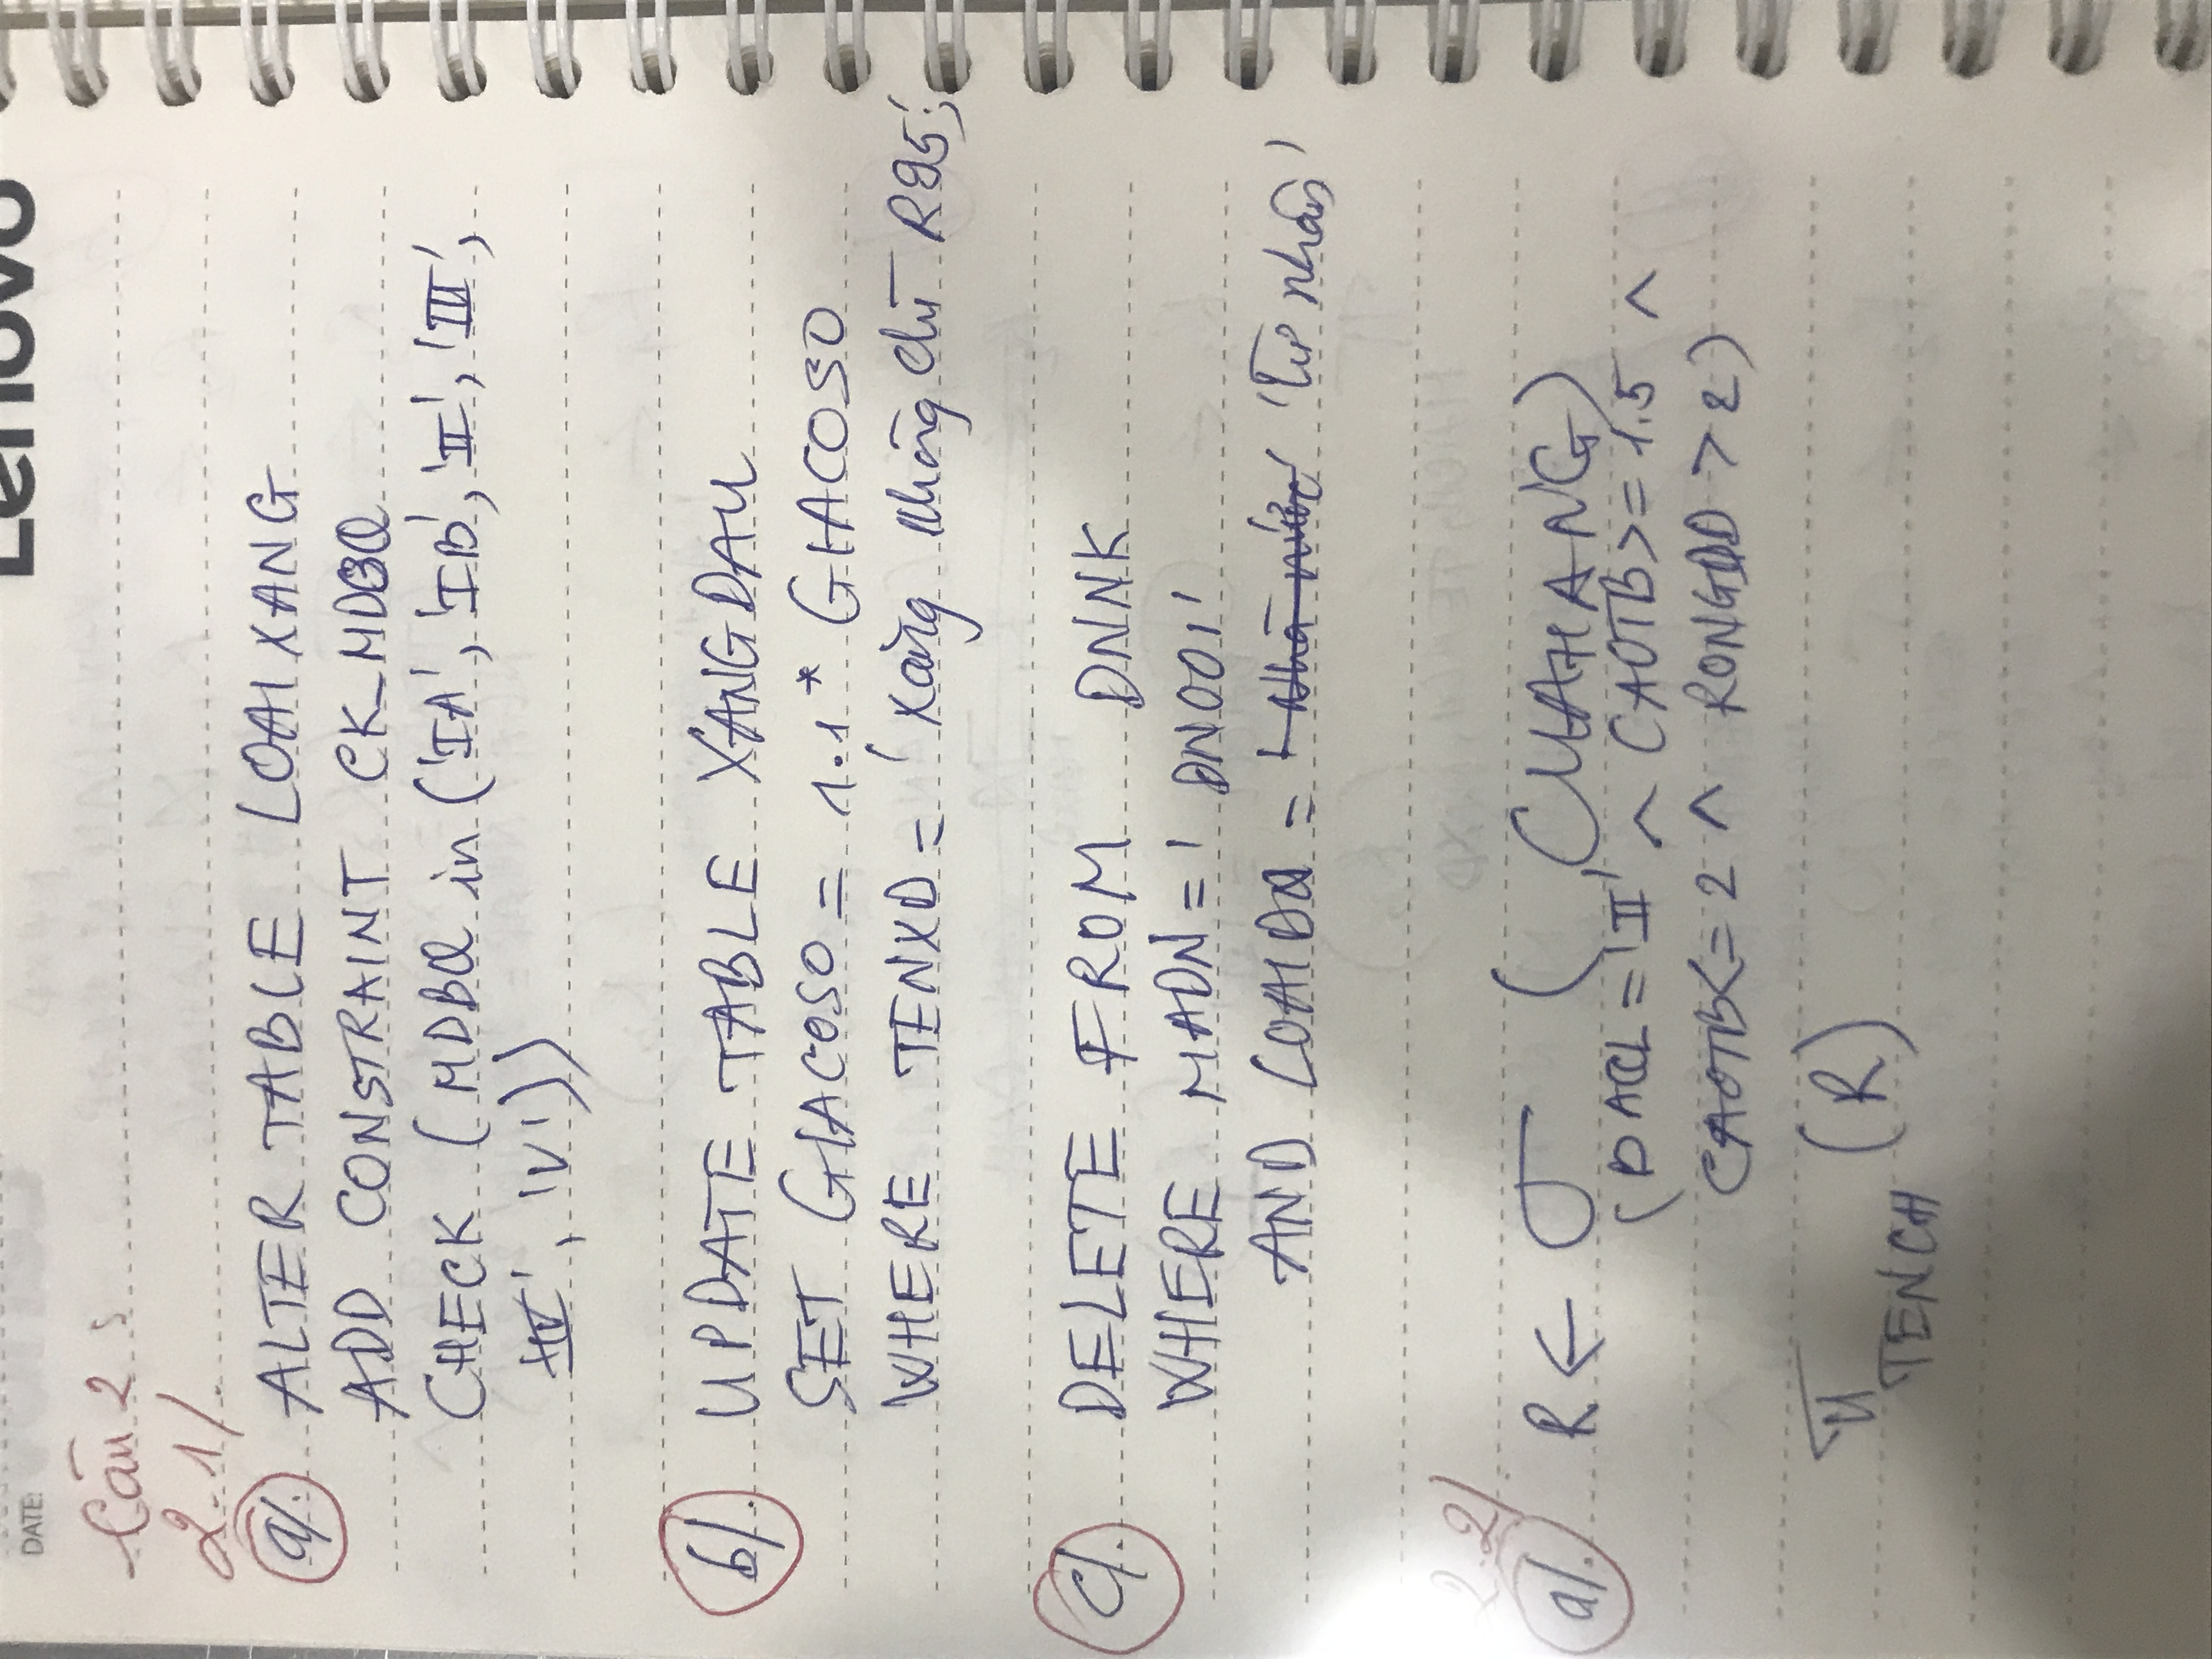 Lenovo
DATE:
Câu 2 :
2.1/.
a/. ALTER TABLE LOAIXANG
ADD CONSTRAINT CK_MDBQ
CHECK (MDBQ in ('IA', 'IB', 'II', 'III',
'IV', 'V'))
b/. UPDATE TABLE XANGDAU
SET GIACOSO = 1.1 * GIACOSO
WHERE TENXD = 'Xăng không chì R95';
c/. DELETE FROM DNNK
WHERE MADN = 'DN001'
AND LOAIDN = 'Nhà nước' 'Tư nhân'
2.2/.
a/. R ← σ (CUAHANG)
(DACCL = 'II' ^ CAOTB >= 1.5 ^
CAOTB <= 2 ^ RONGDD > 2)
π (R)
TENCH